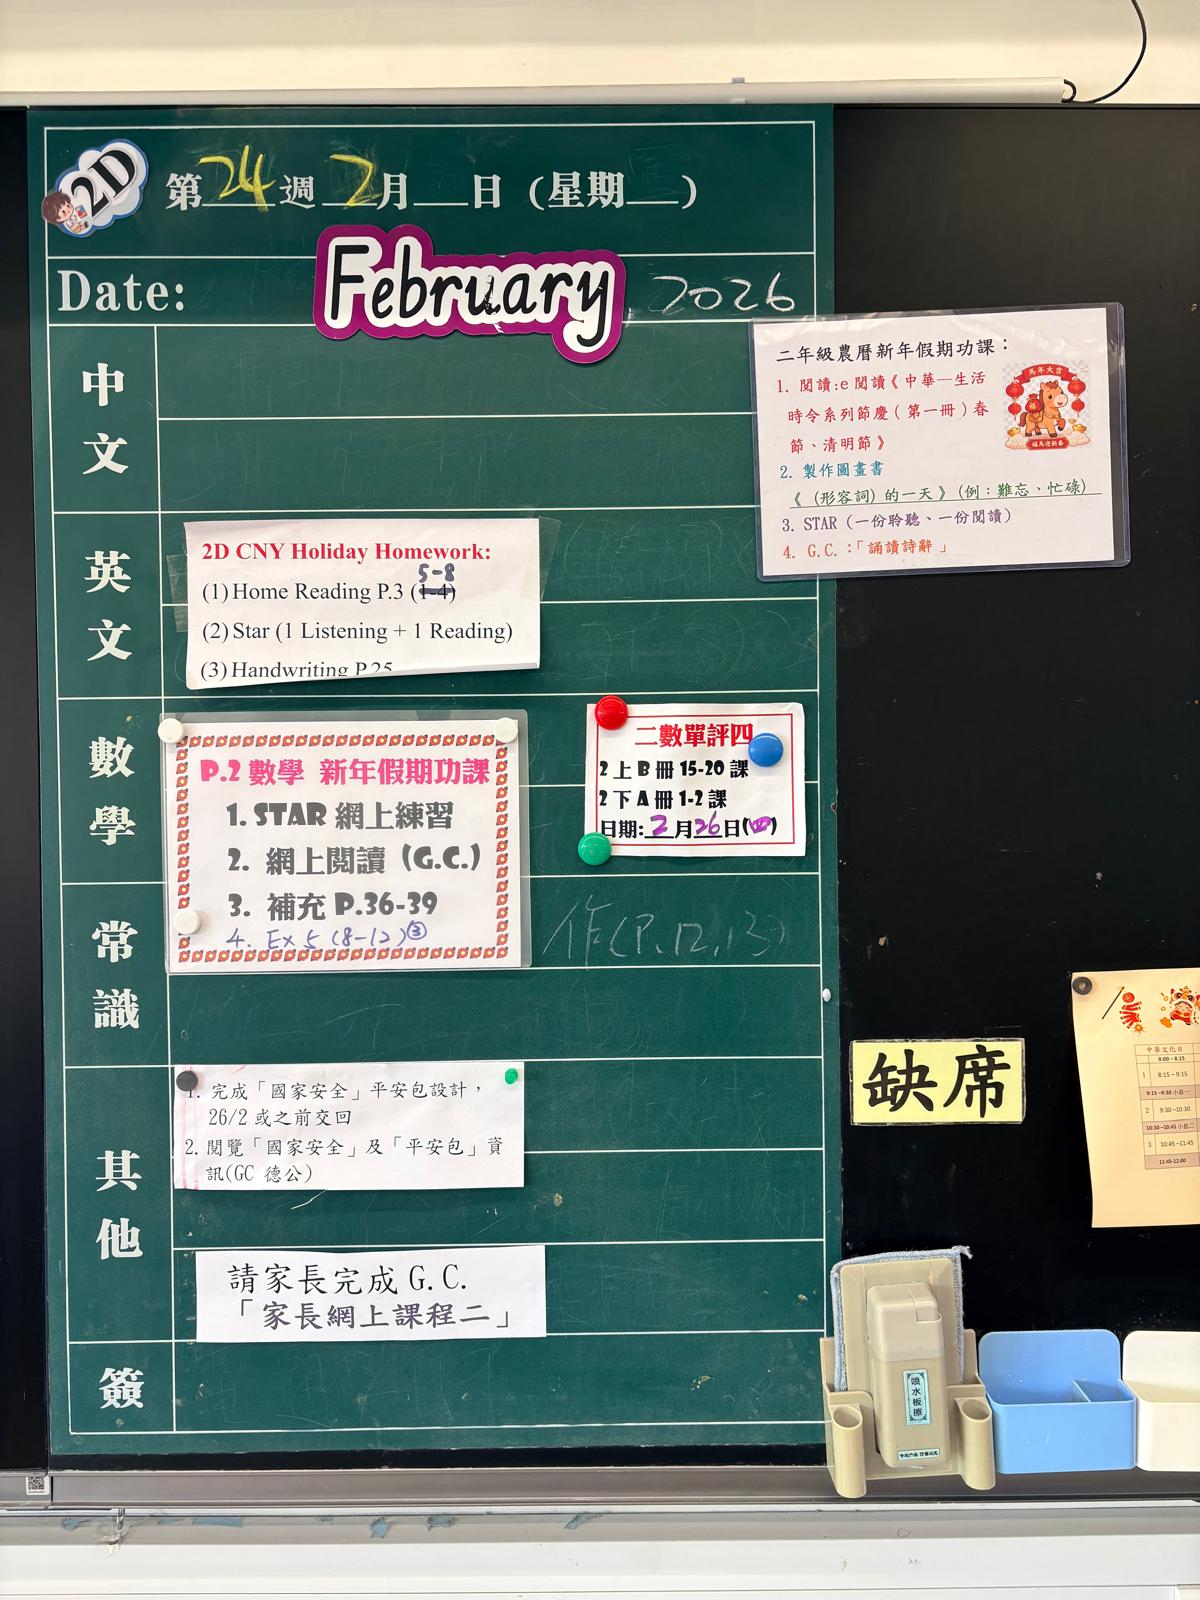 2D
第24週 2月 日（星期 ）
Date: February 2026
中文
英文
2D CNY Holiday Homework:
5-8
(1) Home Reading P.3 (1-4)
(2) Star (1 Listening + 1 Reading)
(3) Handwriting P.25
數學
P.2 數學 新年假期功課
1. STAR 網上練習
2. 網上閱讀 (G.C.)
3. 補充 P.36-39
4. Ex 5 (8-12) ③
二數單評四
2 上 B 冊 15-20 課
2 下 A 冊 1-2 課
日期: 2月26日(四)
常識
作(P.12,13)
其他
1. 完成「國家安全」平安包設計，
26/2 或之前交回
2. 閱覽「國家安全」及「平安包」資
訊(GC 德公)
請家長完成 G.C.
「家長網上課程二」
簽
二年級農曆新年假期功課：
1. 閱讀:e 閱讀《中華—生活
時令系列節慶（第一冊）春
節、清明節》
2. 製作圖畫書
《 (形容詞) 的一天》(例：難忘、忙碌)
3. STAR（一份聆聽、一份閱讀）
4. G.C.：「誦讀詩辭」
馬年大吉
福馬迎新春
缺席
中華文化日
8:00 – 8:15
1 8:15 – 9:15
9:15 –9:30 小息一
2 9:30 –10:30
10:30 –10:45 小息二
3 10:45 –11:45
11:45-12:00
噴水板擦